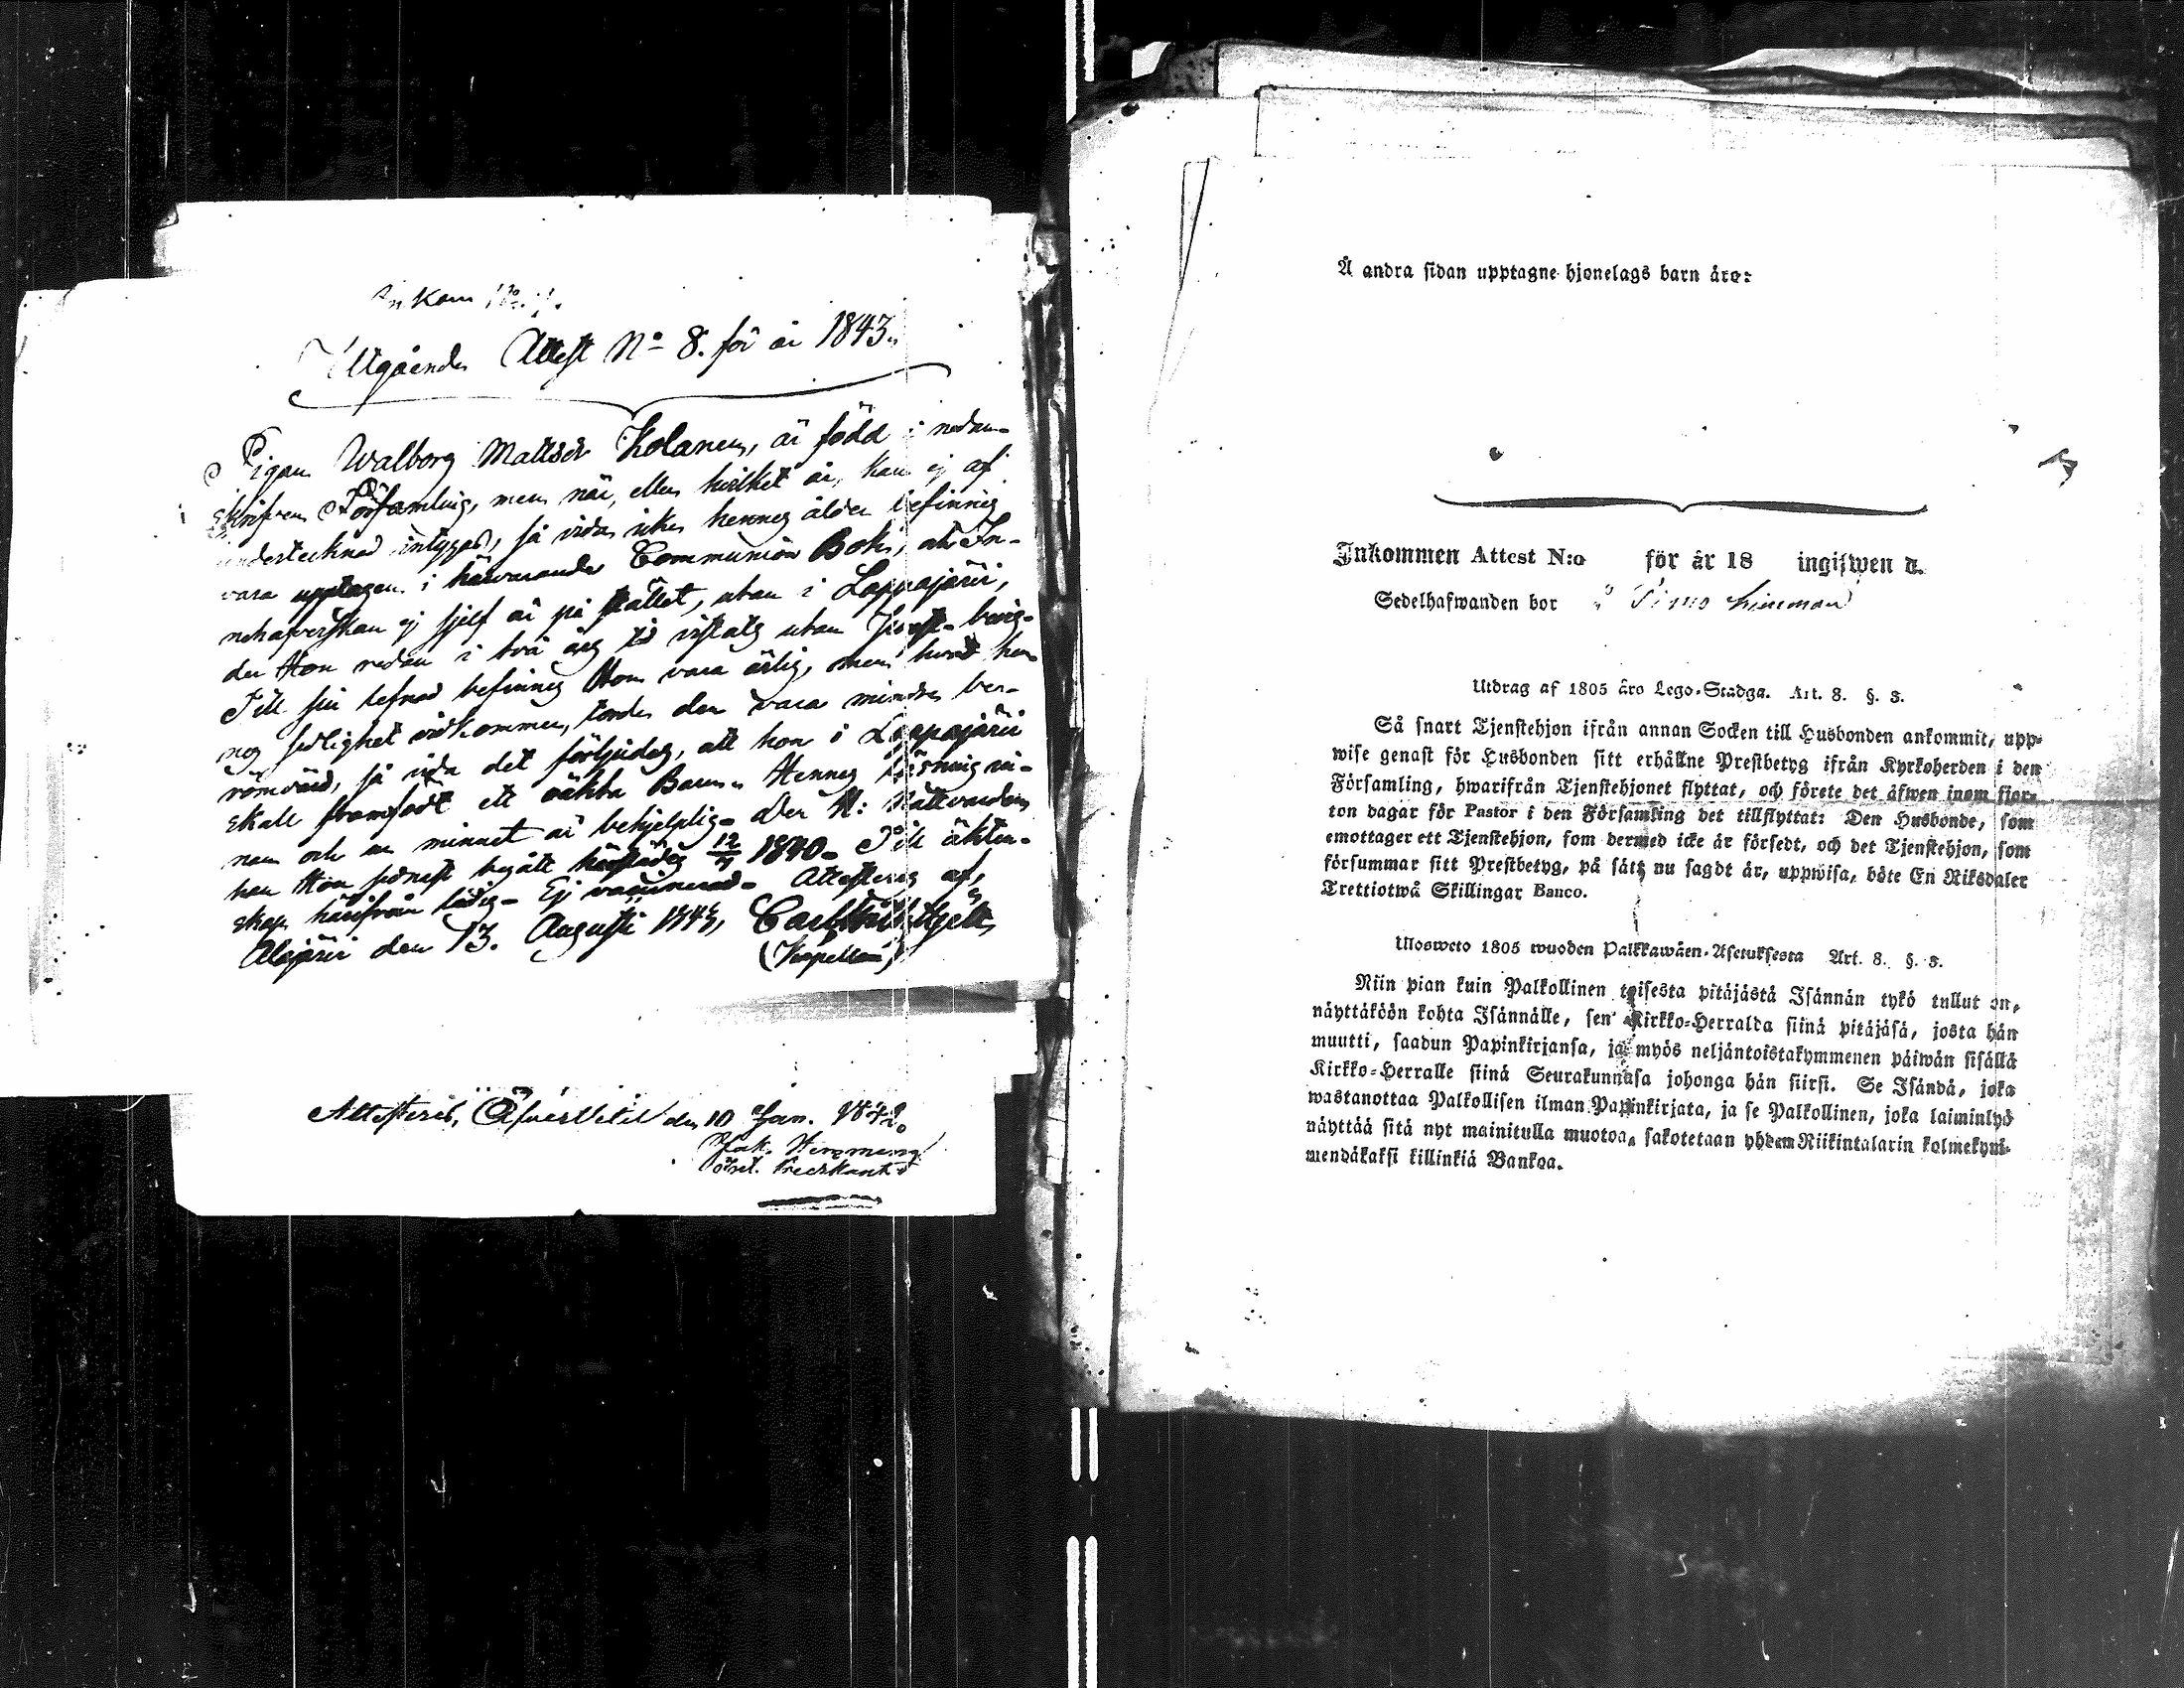 Inkom
Utgående Attest No 8. för år 1843.
Pigan Walborg Mattsdr Kolanen, är född i nedan-
skrifven Församling, men när, eller hvilket år, kan ej af
undertecknad intygas, så vida icke hennes ålder befinnes
vara upptagen i härvarande Communion Bok, ak In-
nehafverskan ej sjelf är på stället, utan i Lappajärvi,
der Hon redan i två års tid vistats utan Prest-bevis-
Till sin lefnad befinnes Hon vara ärlig, men hvad hen-
nes sedlighet vidkommer, torde den vara mindre ber-
römvärd, så vida det förljudes, att hon i Lappajärvi
skall framfödt ett oäkta Barn. Hennes läsning in-
nan och ur minnet är behjelplig. Den H: Nattvarden
har Hon sednast begått härstädes 12/7 1840. Till äkten-
skap härifrån ledig. Ej vaccinerad. Attesteras af,
Alajärvi den 13. Augusti 1843, Carl
(Kapellan)
Attesterid, Öfvervetil den 10 Jan. 1842.
Jak. Hemming
Å andra sidan upptagne hjonelags barn äro:
Inkommen Attest N:o för år 18 ingifwen d.
Sedelhafwanden bor å Timo hinman
Utdrag af 1805 års Lego-Stadga. Art. 8. §. 3.
Så snart Tjenstehjon ifrån annan Socken till Husbonden ankommit, upp-
wise genast för Husbonden sitt erhållne Prestbetyg ifrån Kyrkoherden i den
Församling, hwarifrån Tjenstehjonet flyttat, och förete det äfwen inom fjor-
ton dagar för Pastor i den Församling det tillflyttat: Den Husbonde, som
emottager ett Tjenstehjon, som dermed icke är försedt, och det Tjenstehjon, som
försummar sitt Prestbetyg, på sätt nu sagdt är, uppwisa, böte En Riksdaler
Trettiotwå Skillingar Banco.
Ulosweto 1805 wuoden Palkkawäen-Asetuksesta Art. 8. §. 3.
Niin pian kuin Palkollinen toisesta pitäjästä Isännän tykö tullut on,
näyttäköön kohta Isännälle, sen Kirkko-Herralda siinä pitäjäsä, josta hän
muutti, saadun Papinkirjansa, ja myös neljäntoistakymmenen päiwän sisällä
Kirkko-Herralle siinä Seurakunnasa johonga hän siirsi. Se Isändä, joka
wastanottaa Palkollisen ilman Papinkirjata, ja se Palkollinen, joka laiminlyö
näyttää sitä nyt mainitulla muotoa, sakotetaan yhdem Riikintalarin kolmekym-
mendäkaksi killinkiä Bankoa.